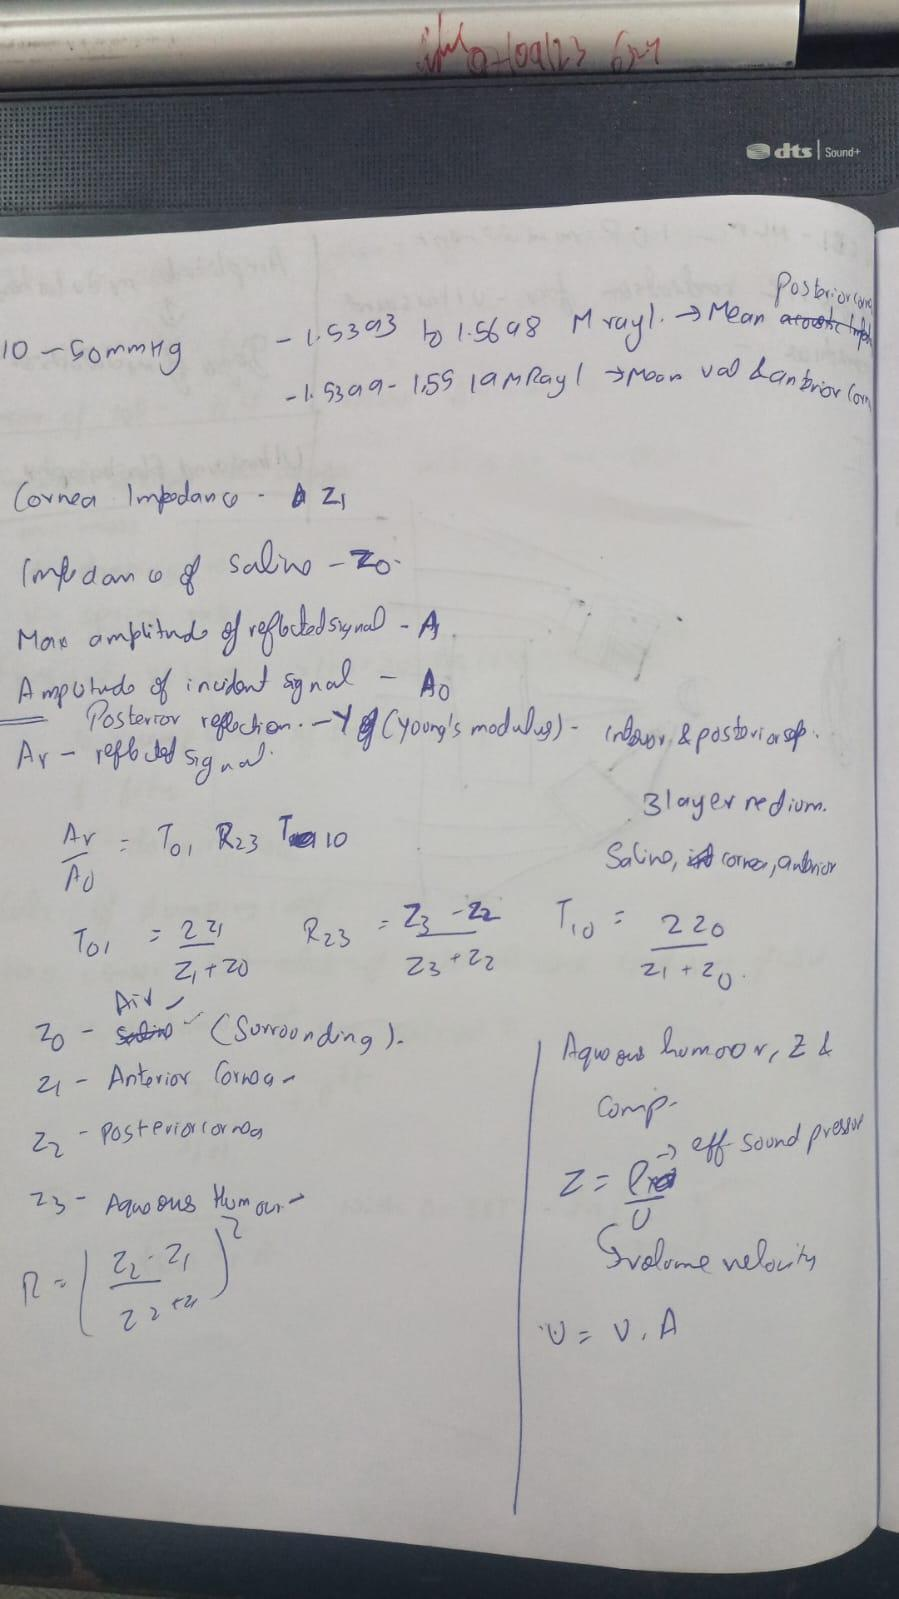 07/09/23
dts Sound+
Posterior
10 - 50mmHg - 1.5393 to 1.5698 M rayl. → Mean
- 1.5399 - 1.5519 MRayl → Mean val & anterior Corn
Cornea Impedance - Z1
Impedance of Saline - Z0.
Max amplitude of reflected signal - A
Amplitude of incident signal - A0
Posterior reflection. - Y (Young's modulus) - & posterior
Ar - reflected signal.
3 layer medium.
Ar/A0 = T01 R23 T10
Saline, cornea, anterior
T01 = 2Z1/Z1+Z0 R23 = Z3-Z2/Z3+Z2 T10 = 2Z0/Z1+Z0.
Air
Z0 - Saline (Surrounding).
Z1 - Anterior Cornea
Z2 - Posterior Cornea
Z3 - Aqueous Humour
R = (Z2-Z1/Z2+Z1)2
Aqueous humour, Z &
Comp.
→ eff sound pressur
Z = P/U
volume velocity
U = V.A